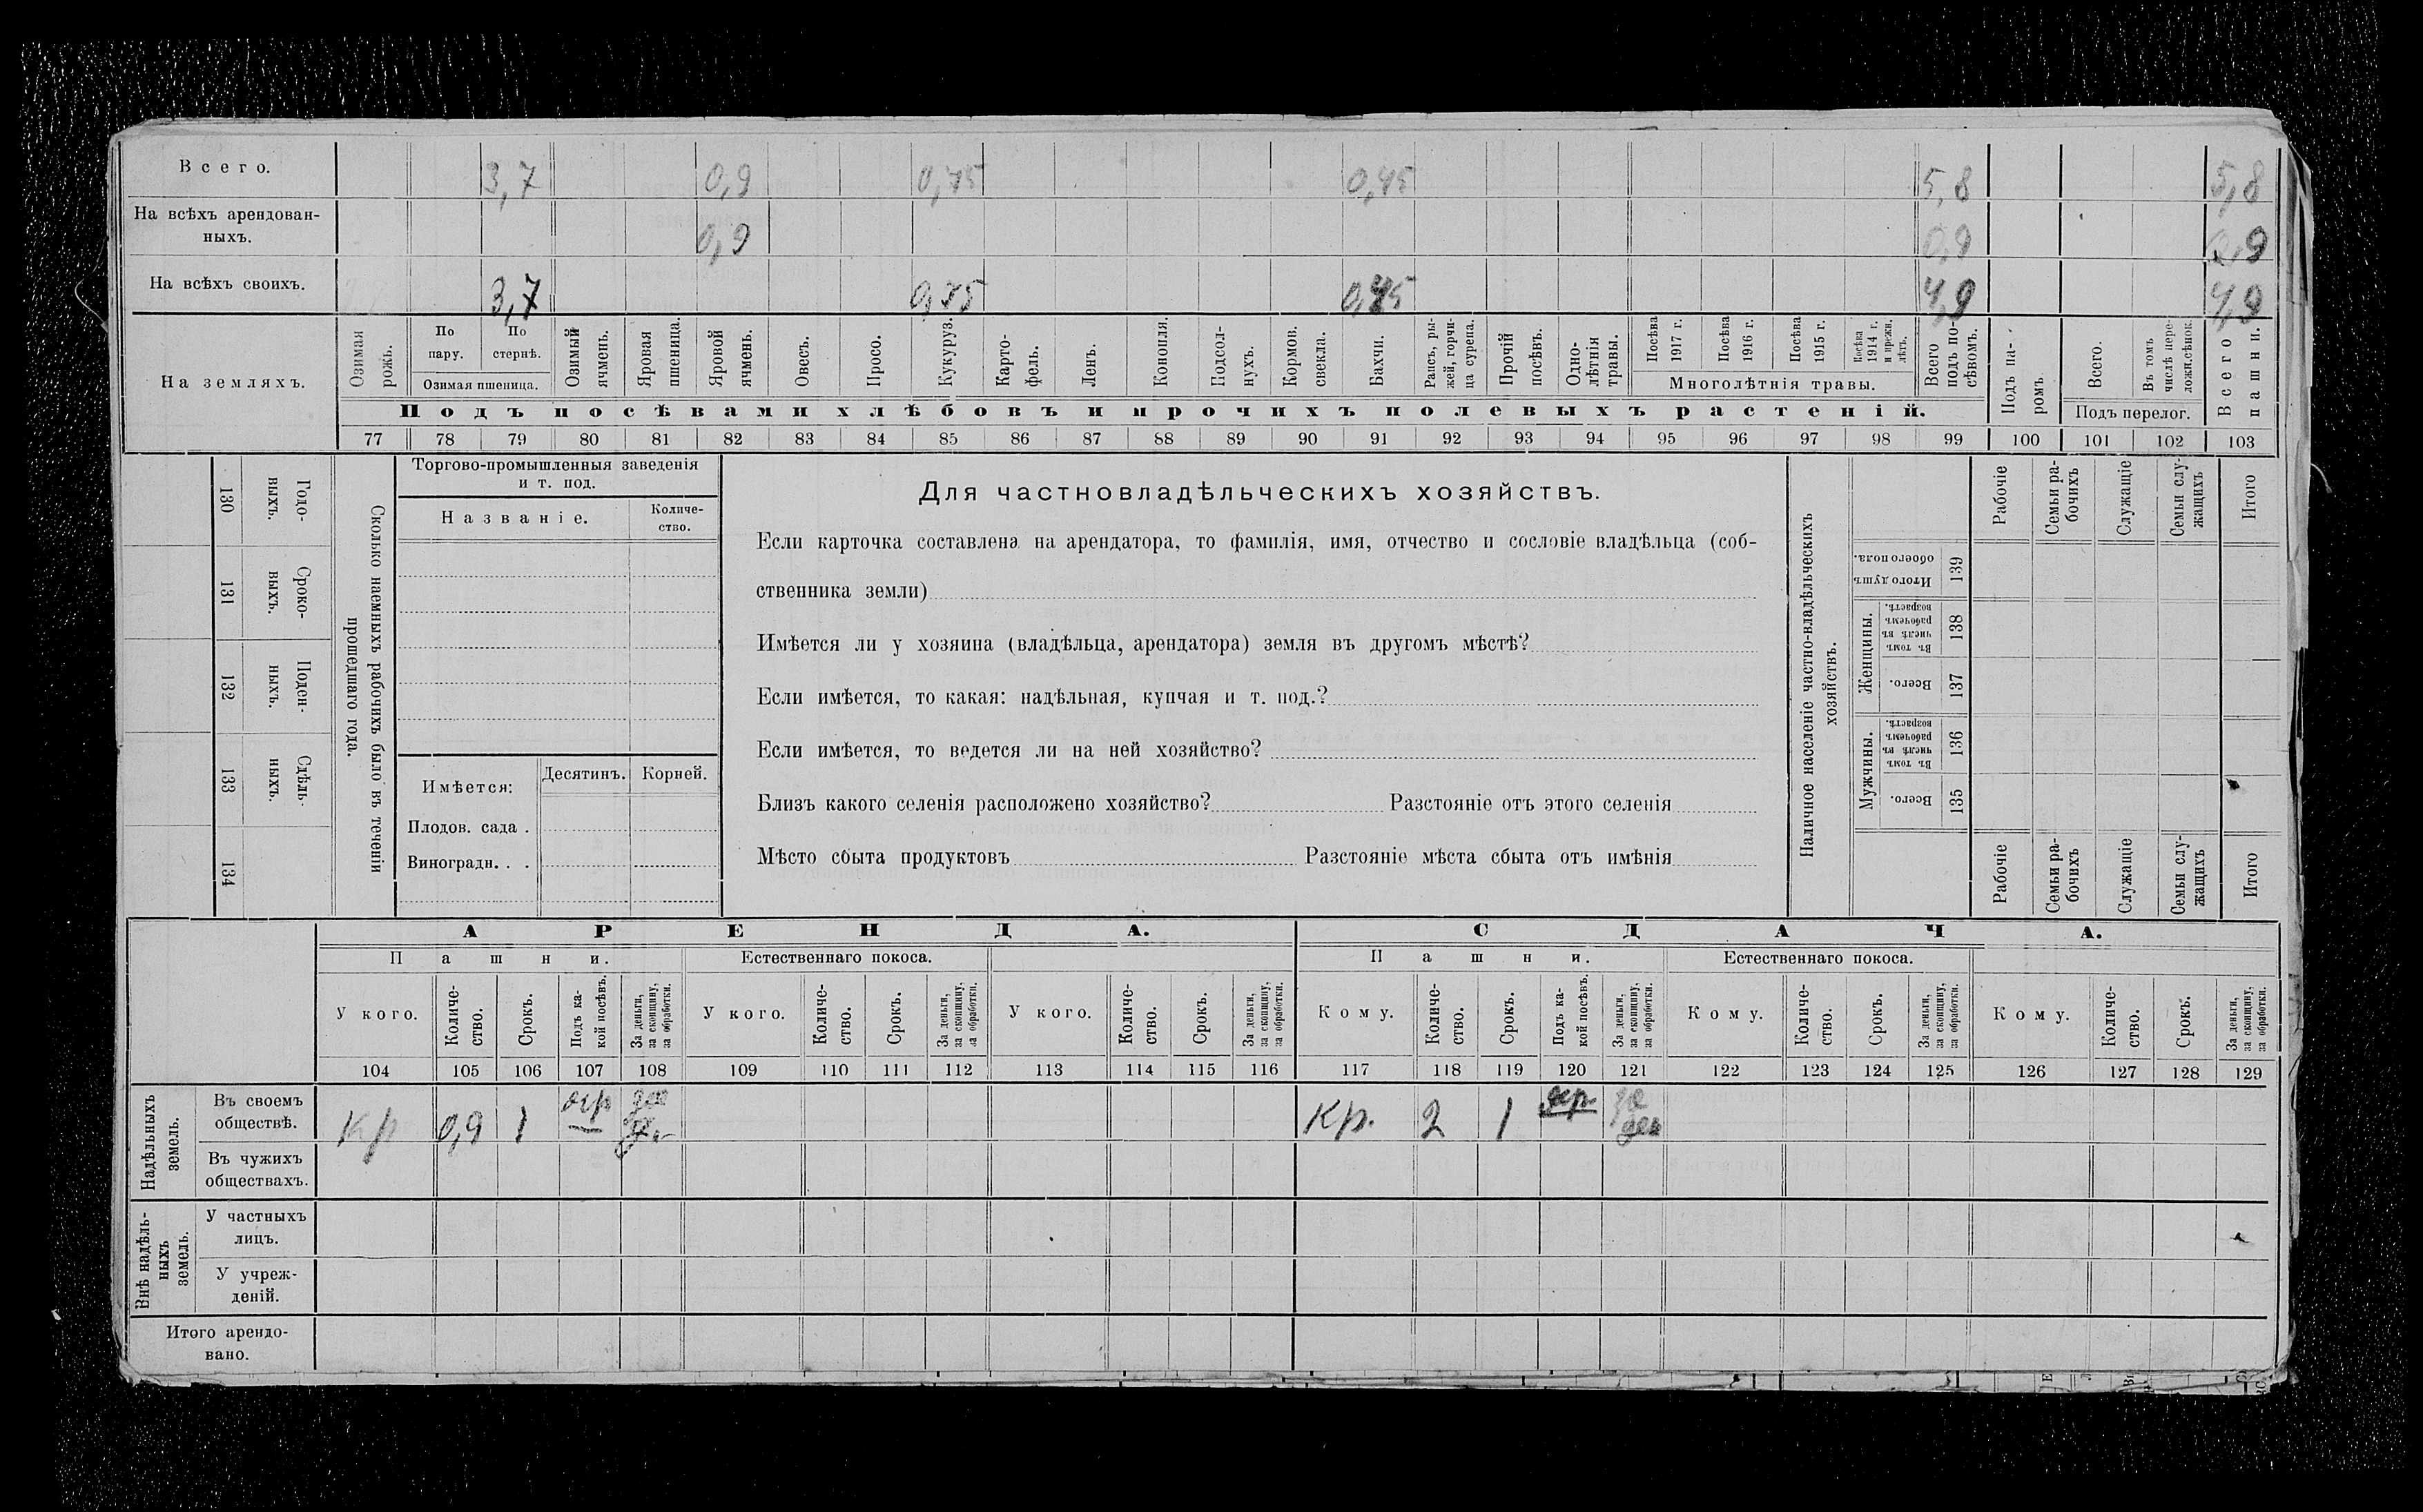 Всего. 3,7 0,9 0,75 0,45 5,8 5,8
На всѣхъ арендован-
ныхъ. 0,9 0,9 0,9
На всѣхъ своихъ. 3,7 0,75 0,45 4,9 4,9
На земляхъ.
Озимая
рожь.
По
пару.
По
стернѣ.
Озимая пшеница.
Озимый
ячмень.
Яровая
пшеница.
Яровой
ячмень.
Овесъ.
Просо.
Кукуруз.
Карто-
фель.
Ленъ.
Конопля.
Подсол-
нухъ.
Кормов.
свекла.
Бахчи.
Рапсъ, ры-
жей, горчи-
ца сурепа.
Прочій
посѣвъ.
Одно-
лѣтнія
травы.
Посѣва
1917 г.
Посѣва
1916 г.
Посѣва
1915 г.
Посѣва
1914 г.
и прежн.
лѣтъ.
Многолѣтнія травы.
Всего
подъ по-
сѣвомъ.
Подъ па-
ромъ.
Всего.
Въ томъ
числѣ пере-
ложн.сѣнок.
Подъ перелог.
Всего
пашни.
Подъ посѣвами хлѣбовъ и прочихъ полевыхъ растеній.
77 78 79 80 81 82 83 84 85 86 87 88 89 90 91 92 93 94 95 96 97 98 99 100 101 102 103
130 Годо-
ныхъ.
131 Сроко-
выхъ.
132 Поден-
ныхъ.
133 Сдѣль-
ныхъ.
134
Сколько наемныхъ рабочихъ было въ теченіи
прошедшаго года.
Торгово-промышленныя заведенія
и т. под.
Названіе.
Количе-
ство.
Имѣется:
Десятинъ. Корней.
Плодов. сада .
Виноградн. . .
Для частновладѣльческихъ хозяйствъ.
Если карточка составлена на арендатора, то фамилія, имя, отчество и сословіе владѣльца (соб-
ственника земли)
Имѣется ли у хозяина (владѣльца, арендатора) земля въ другомъ мѣстѣ?
Если имѣется, то какая: надѣльная, купчая и т. под.?
Если имѣется, то ведется ли на ней хозяйство?
Близъ какого селенія расположено хозяйство? Разстояніе отъ этого селенія
Мѣсто сбыта продуктовъ Разстояніе мѣста сбыта отъ имѣнія
Наличное населеніе частно-владѣльческихъ
хозяйствъ.
Рабочіе
Семьи ра-
бочихъ
Служащіе
Семьи слу-
жащихъ
Итого
Итого душъ
обоего пола.
139
Женщины.
Въ томъ
числѣ въ
рабочемъ
возрастѣ.
138
Всего.
137
Мужчины.
Въ томъ
числѣ въ
рабочемъ
возрастѣ.
136
Всего.
135
Рабочіе
Семьи ра-
бочихъ
Служащіе
Семьи слу-
жащихъ
Итого
АРЕНДА. СДАЧА.
Пашни. Естественнаго покоса. Пашни. Естественнаго покоса.
У кого.
Количе-
ство.
Срокъ.
Подъ ка-
кой посѣвъ.
За деньги,
за скопщину,
за обработки.
У кого.
Количе-
ство.
Срокъ.
За деньги,
за скопщину,
за обработки.
У кого.
Количе-
ство.
Срокъ.
За деньги,
за скопщину,
за обработки.
Кому.
Количе-
ство.
Срокъ.
Подъ ка-
кой посѣвъ.
За деньги,
за скопщину,
за обработки.
Кому.
Количе-
ство.
Срокъ.
За деньги,
за скопщину,
за обработки.
Кому.
Количе-
ство.
Срокъ.
За деньги,
за скопщину,
за обработки.
104 105 106 107 108 109 110 111 112 113 114 115 116 117 118 119 120 121 122 123 124 125 126 127 128 129
Надѣльныхъ
земель.
Въ своемъ
обществѣ.
Кр 0,9 1 Кр. 2 1 за
ден
Въ чужихъ
обществахъ.
Внѣ надѣль-
ныхъ
земель.
У частныхъ
лицъ.
У учреж-
деній.
Итого арендо-
вано.